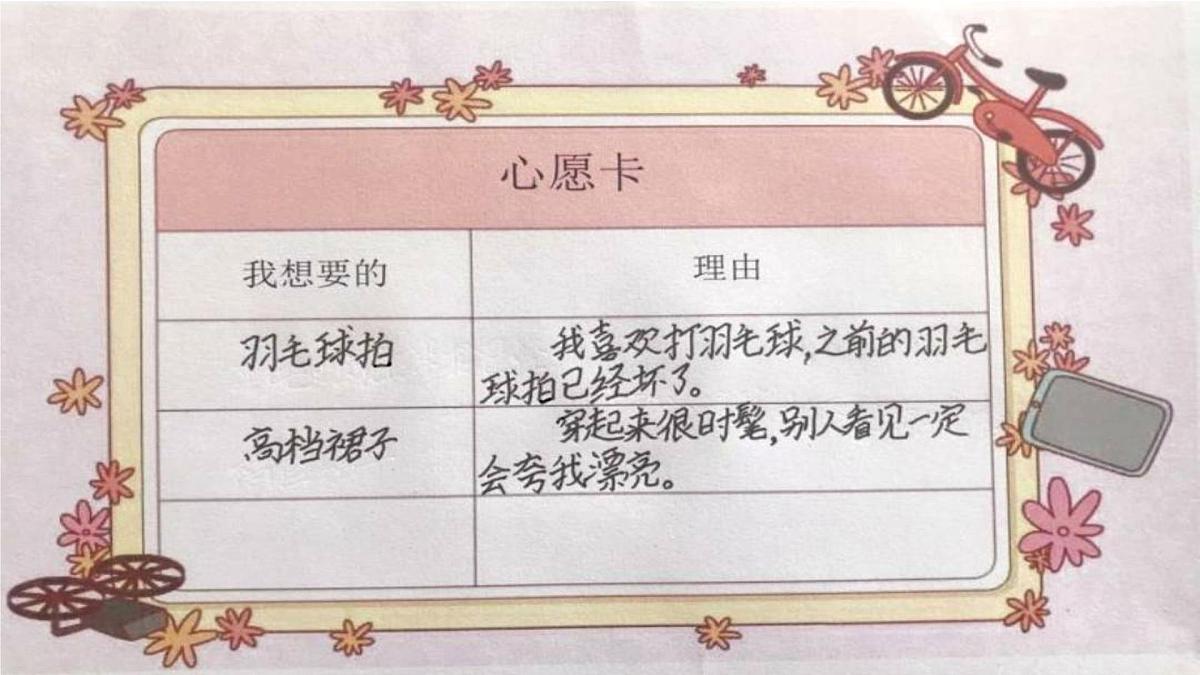 心愿卡
我想要的
理由
羽毛球拍
我喜欢打羽毛球,之前的羽毛
球拍已经坏了。
高档裙子
穿起来很时髦,别人看见一定
会夸我漂亮。